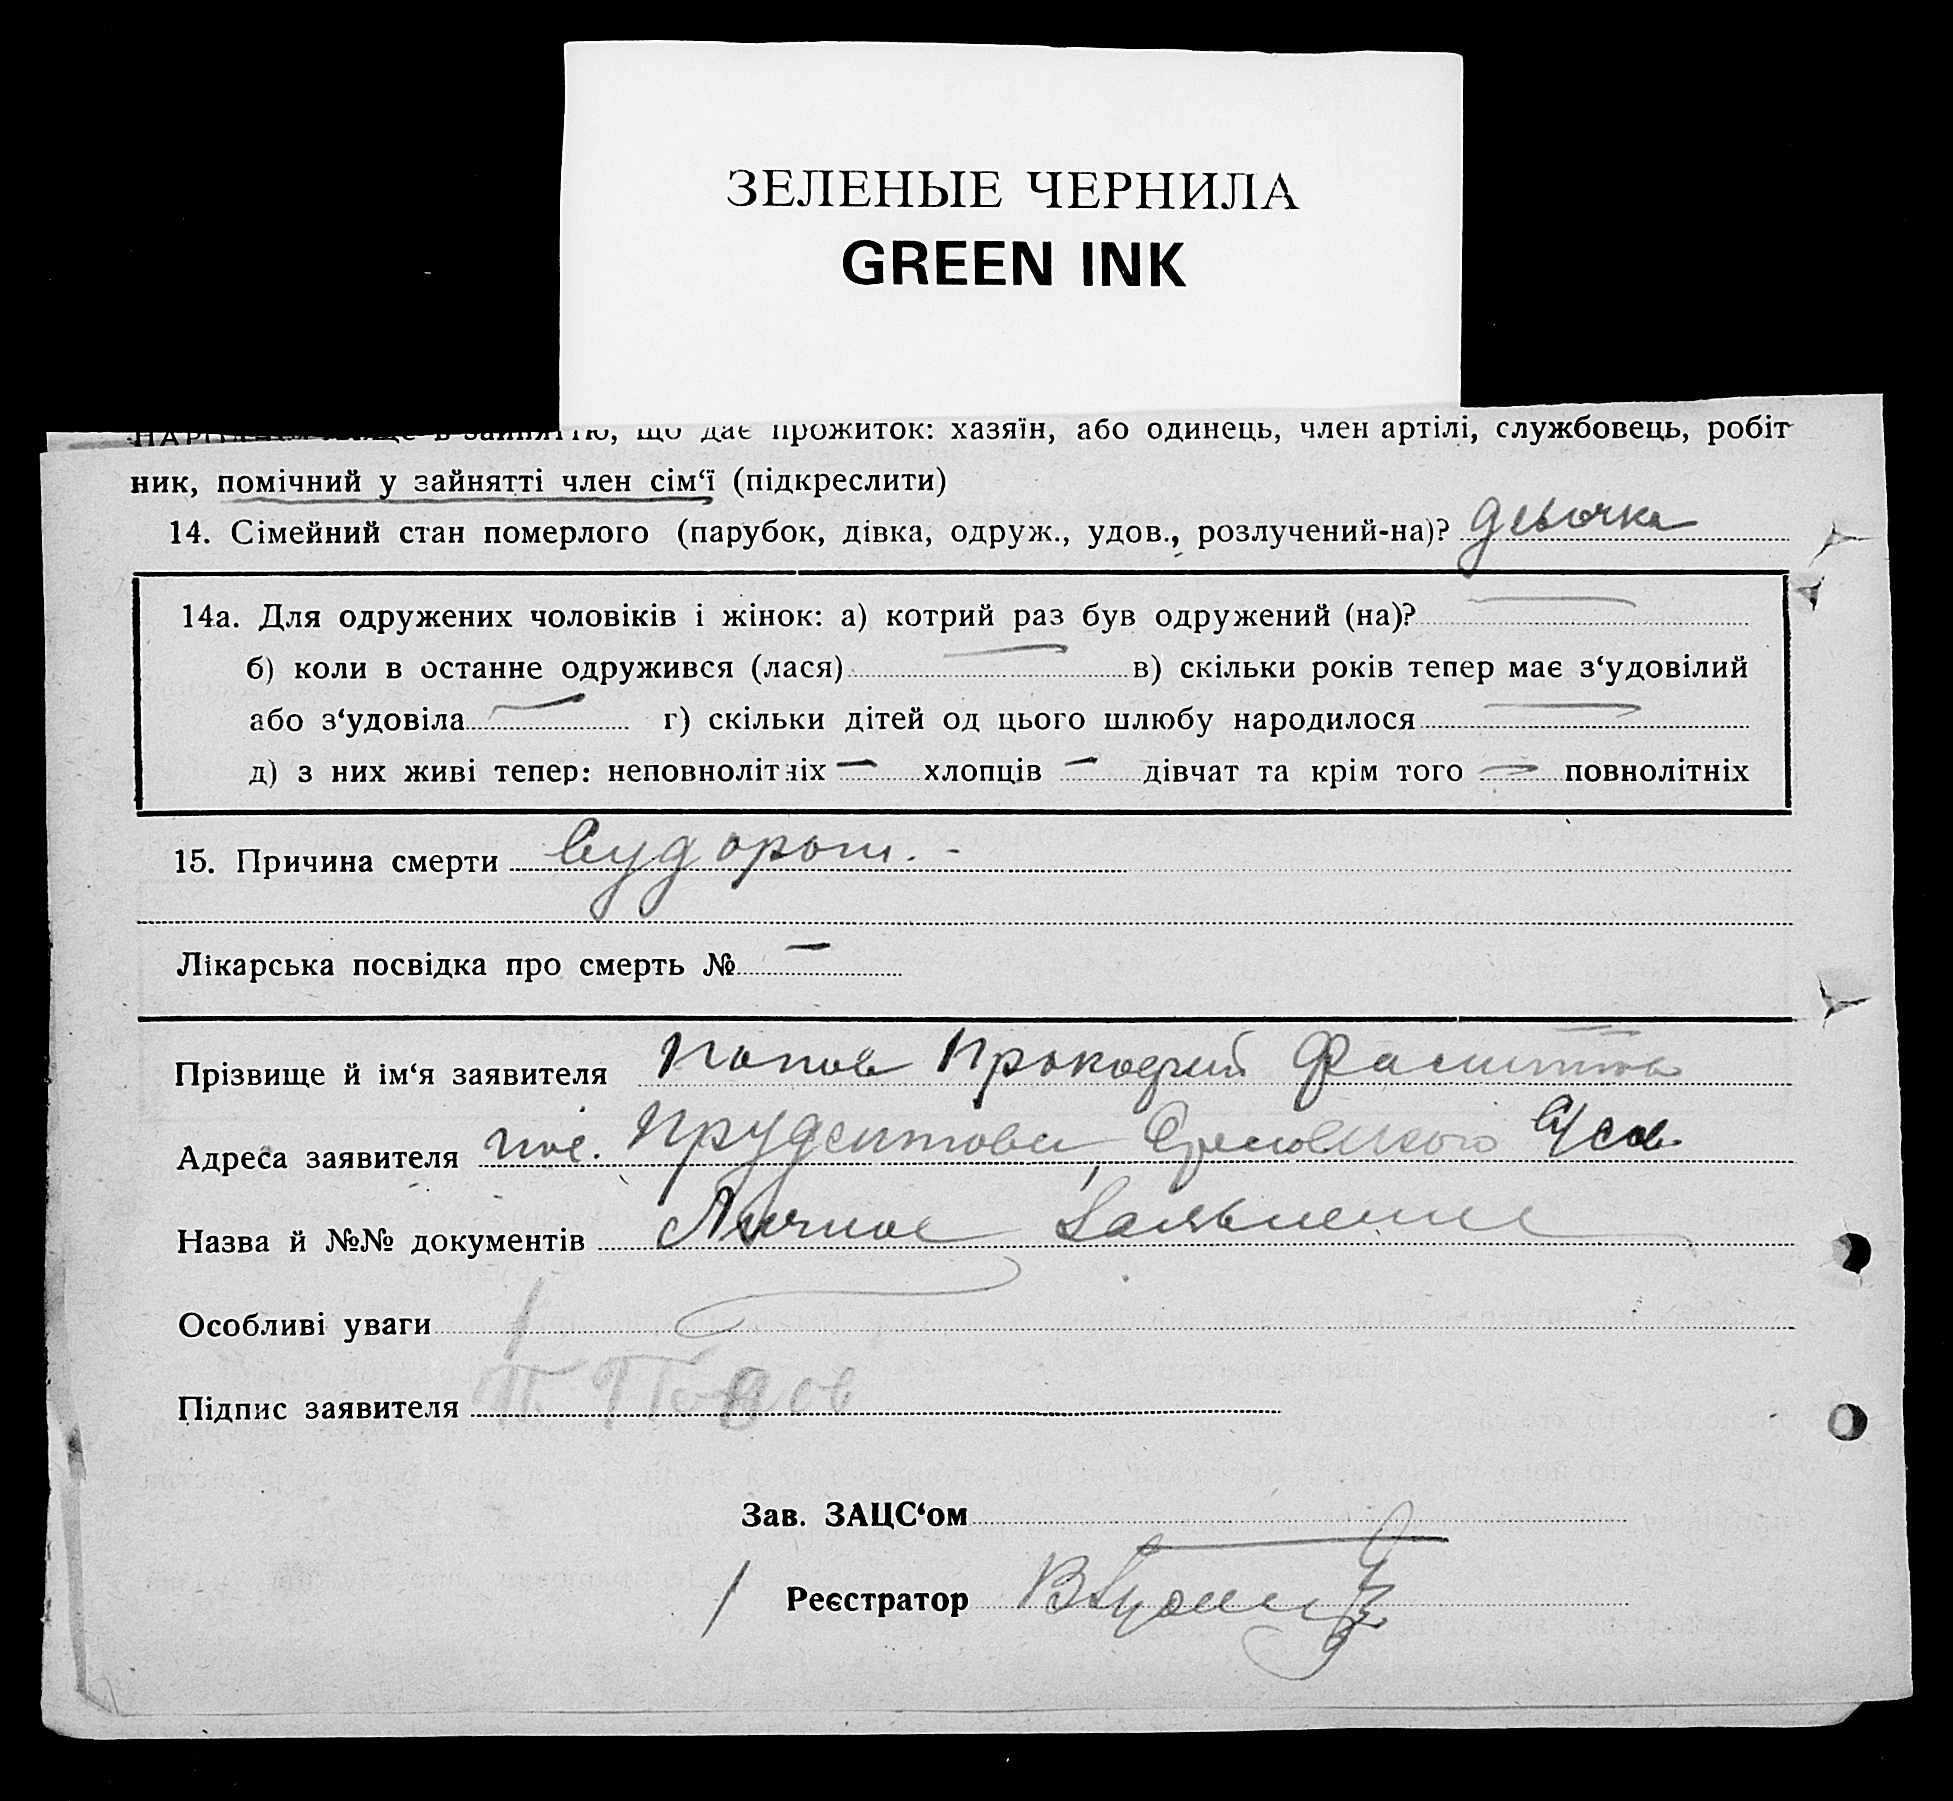 ЗЕЛЕНЫЕ ЧЕРНИЛА
GREEN INK
що дає прожиток: хазяїн, або одинець, член артілі, службовець, робіт
ник, помічний у зайнятті член сім‘ї (підкреслити)
14. Сімейний стан померлого (парубок, дівка, одруж., удов., розлучений-на)? девочка
14а. Для одружених чоловіків і жінок: а) котрий раз був одружений (на)? —
б) коли в останне одружився (лася) — в) скільки років тепер має з‘удовілий
або з‘удовіла — г) скільки дітей од цього шлюбу народилося —
д) з них живі тепер: неповнолітніх — хлопців — дівчат та крім того — повнолітніх
15. Причина смерти судороги. -
Лікарська посвідка про смерть № —
Прізвище й ім‘я заявителя Попов Прокофий
Адреса заявителя пос. с/сов.
Назва й №№ документів Личное Заявление
Особливі уваги
Підпис заявителя П. Попов
Зав. ЗАЦС‘ом —
Реєстратор